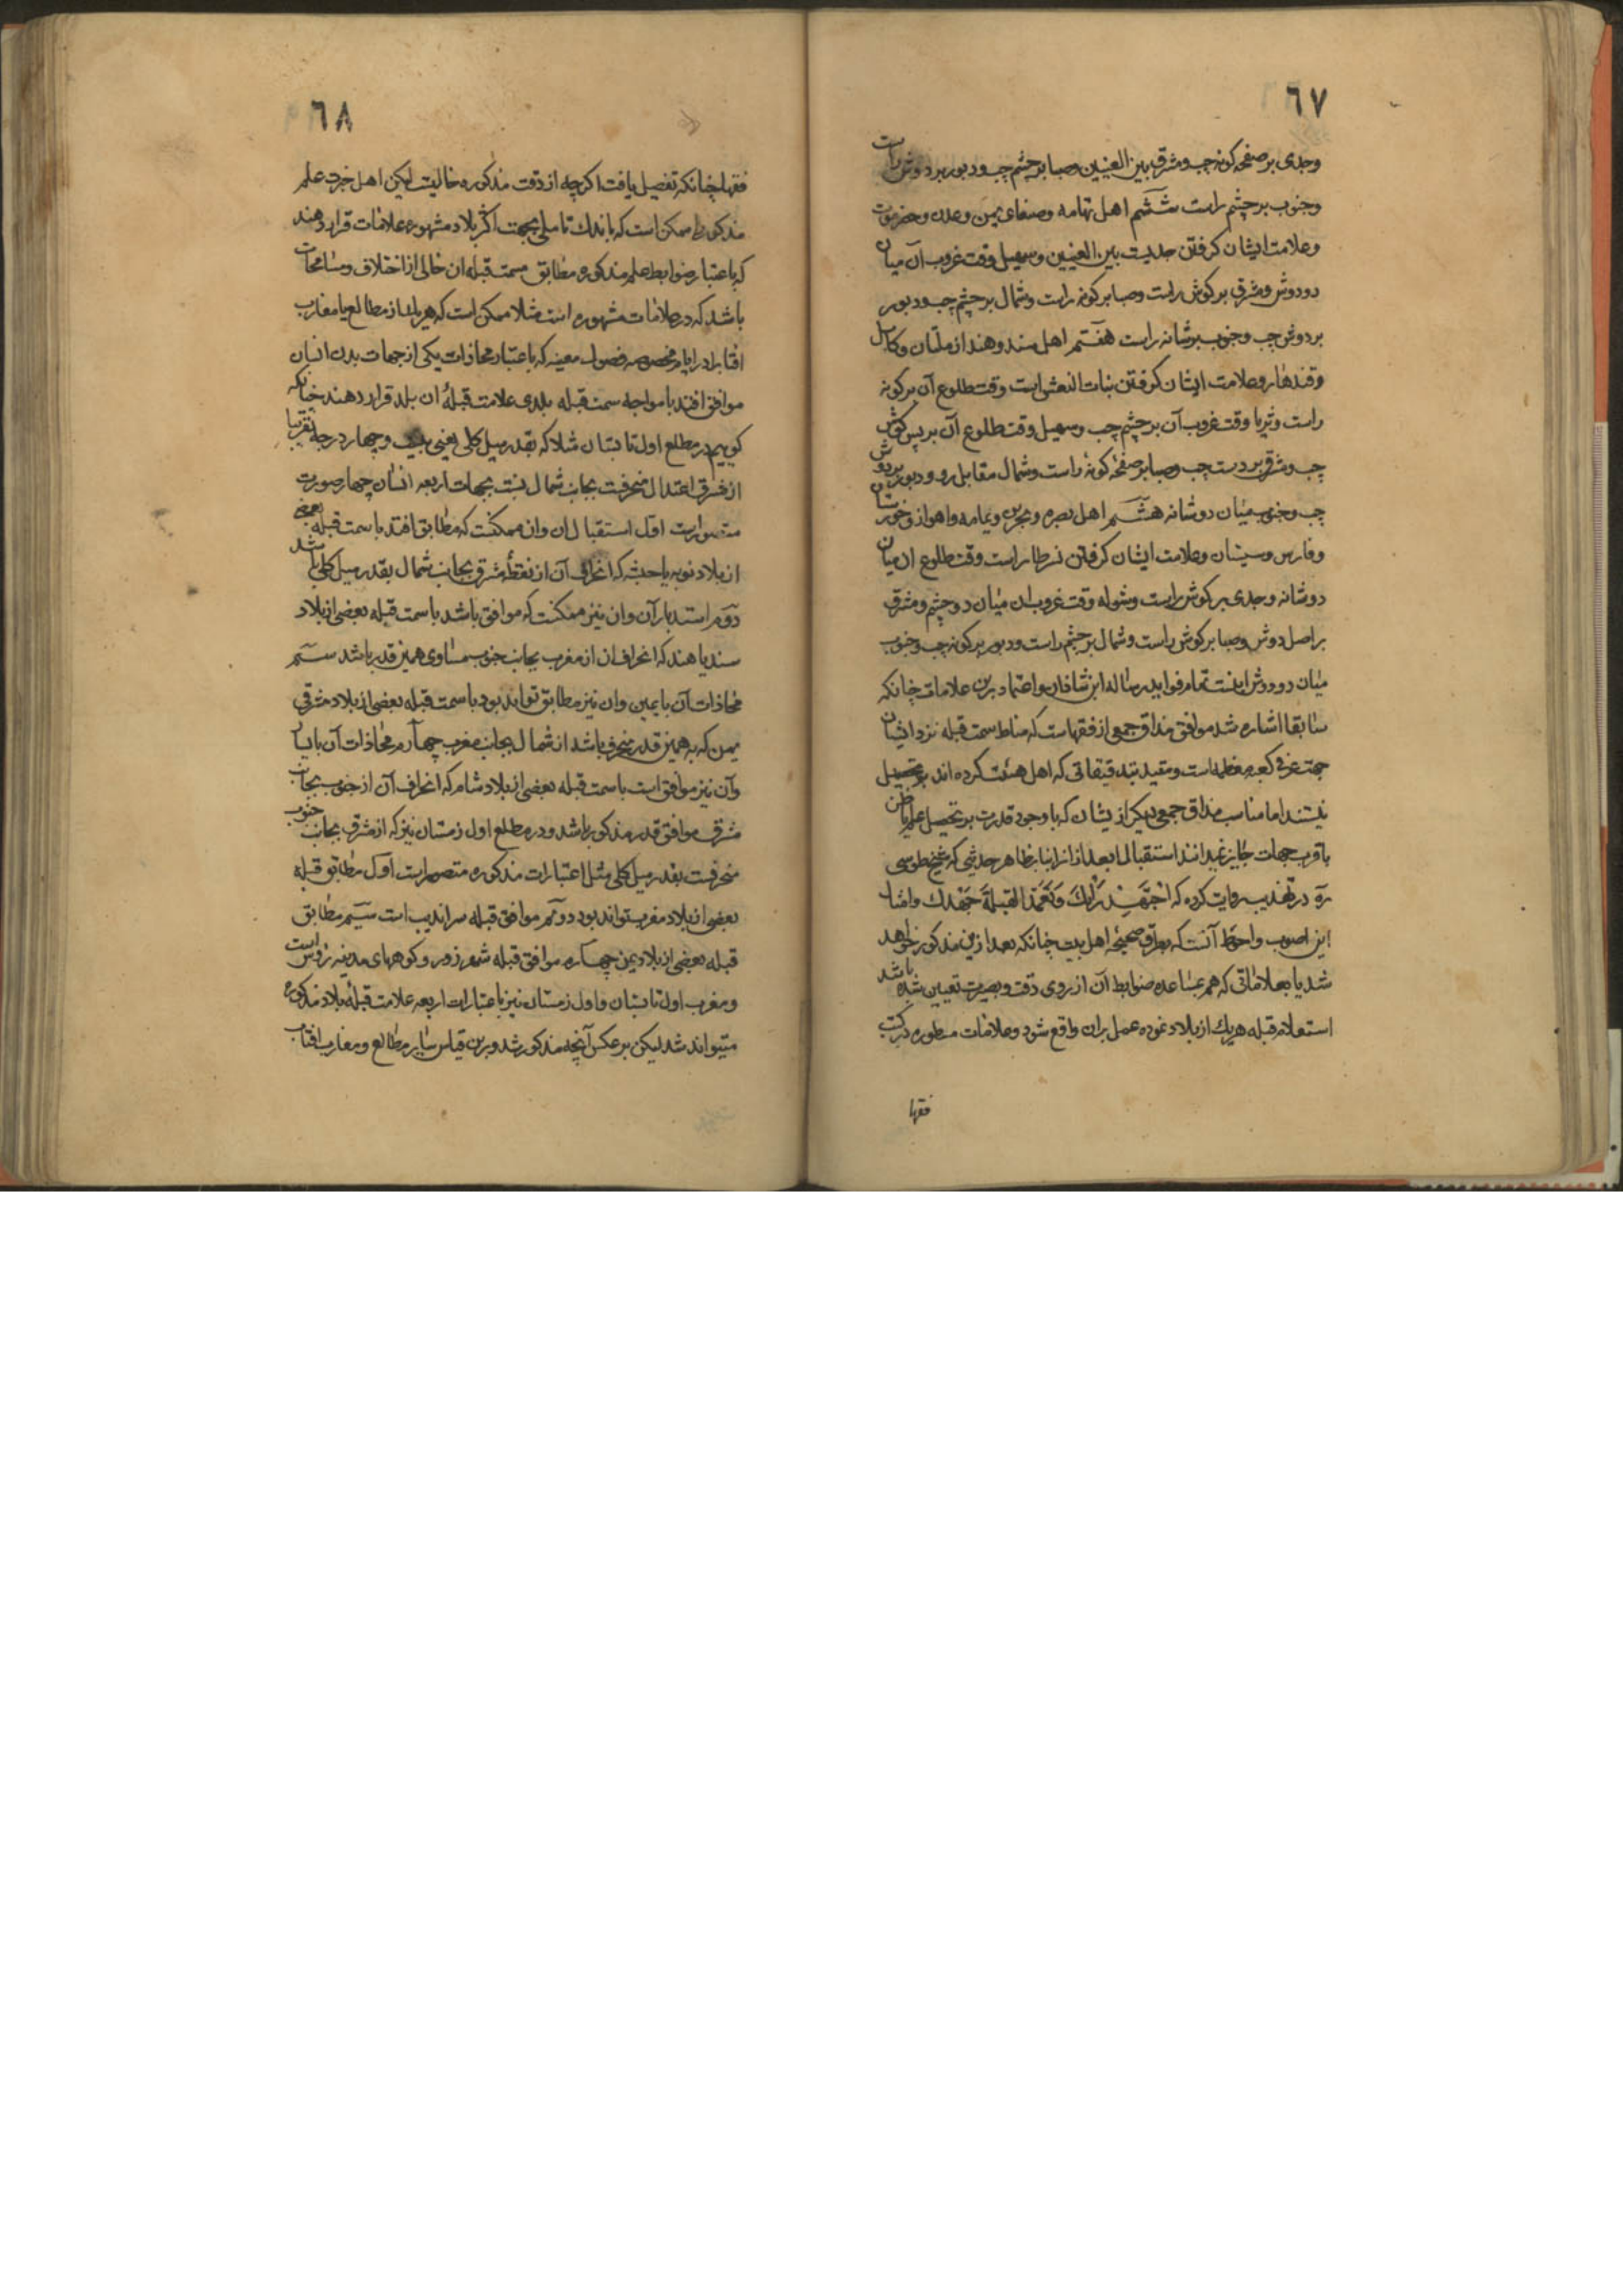 ٦٧
وجدی بر صفحه کونه چپ ومشرق بین العینین وصبا بر چشم چپ ودبور بر دوش راست
وجنوب بر چشم راست ششم اهل تهامه وصنعای یمن وعدن وحضرموت
وعلامت ایشان کرفتن جدیست بین العینین وسهیل وقت غروب آن میان
دو دوش ومشرق بر کوش راست وصبا بر کونه راست وشمال بر چشم چپ ودبور
بر دوش چپ وجنوب بر شانه راست هفتم اهل سند وهند از ملتان وکابل
وقندهار وعلامت ایشان کرفتن بنات النعش است وقت طلوع آن بر کونه
راست وثریا وقت غروب آن بر چشم چپ وسهیل وقت طلوع آن بر پس کوش
چپ ومشرق بر دست چپ وصبا بر صفحه کونهٔ راست وشمال مقابل رو ودبور بر دوش
چپ وجنوب میان دو شانه هشتم اهل بصره وبحرین ویمامه واهواز وخوزستان
وفارس وسیستان وعلامت ایشان کرفتن نسر طایر است وقت طلوع ان میان
دو شانه وجدی بر کوش راست وشوله وقت غروب ان میان دو چشم ومشرق
بر اصل دوش وصبا بر کوش راست وشمال بر چشم راست ودبور بر کونه چپ وجنوب
میان دو دوش اینست تمام فواید رساله ابن شاذان واعتماد برین علامات چنانکه
سابقا اشاره شد موافق مذاق جمعی از فقهاست که مناط سمت قبله نزد ایشان
جهت عرفی کعبه معظمه است ومقید بتدقیقاتی که اهل هیئت کرده اند بتحصیل
نیستند اما مناسب مذاق جمعی دیکر ازیشان که با وجود قدرت بر تحصیل علم یا ظن
باقرب جهات جایز نمیدانند استقبال ما بعد از انرا بنا بر ظاهر حدیثی که شیخ طوسی
ره در تهذیب روایت کرده که اِجْتَهِدْ رَأْیَكَ وَتَعَمَّدْ القبلةَ جَهْدَك وامثال
این اصوب واحوط آنست که بطرق صحیحه اهل بیت چنانکه بعد ازین مذکور خواهد
شد یا بعلاماتی که هم بمساعده ضوابط آن از روی دقت وبصیرت تعیین شده باشد
استعلام قبله هر یك از بلاد نموده عمل بران واقع شود وعلامات مسطوره در کتب
فقها
٦٨
فقها چنانکه تفصیل یافت اکرچه از دقت مذکوره خالیست لیکن اهل خبرت علم
مذکور را ممکن است که باندك تاملی بجهت اکثر بلاد مشهوره علامات قرار دهند
که باعتبار ضوابط علم مذکوره مطابق سمت قبله ان خالی از اختلاف ومسامحات
باشد که در علامات مشهوره است مثلا ممکن است که هر یك از مطالع یا مغارب
افتابرا در ایام مخصوصه فصول معینه که باعتبار محاذات یکی از جهات بدن انسان
موافق افتد با مواجه سمت قبله بلدی علامت قبلهٔ ان بلد قرار دهند چنانکه
کوییم در مطلع اول تابستان مثلا که بقدر میل کلی یعنی بیست وچهار درجه تقریبا
از مشرق اعتدال منحرفست بجانب شمال نسبت بجهات اربعه انسان چهار صورت
متصور است اول استقبال ان وان ممکنست که مطابق افتد با سمت قبله بعضی
از بلاد نوبه یا حبشه که انحراف آن از نقطهٔ مشرق بجانب شمال بقدر میل کلی باشد
دوم استدبار آن وان نیز ممکنست که موافق باشد با سمت قبله بعضی از بلاد
سند یا هند که انحراف ان از مغرب بجانب جنوب مساوی همین قدر باشد سیم
محاذات آن با یمین وان نیز مطابق تواند بود با سمت قبله بعضی از بلاد مشرقی
یمن که به همین قدر منحرف باشد از شمال بجانب مغرب چهارم محاذات آن با یسار
وآن نیز موافق است با سمت قبله بعضی از بلاد شام که انحراف آن از جنوب بجانب
مشرق موافق قدر مذکور باشد ودر مطلع اول زمستان نیز که از مشرق بجانب جنوب
منحرفست بقدر میل کلی مثل اعتبارات مذکوره متصور است اول مطابق قبله
بعضی از بلاد مغرب تواند بود دوم موافق قبله سراندیب است سیم مطابق
قبله بعضی از بلاد یمن چهارم موافق قبله شهر زور وکوههای مدینه است
ومغرب اول تابستان واول زمستان نیز باعتبارات اربعه علامت قبلهٔ بلاد مذکوره
میتواند شد لیکن بر عکس آنچه مذکور شد وبرین قیاس سایر مطالع ومغارب افتاب